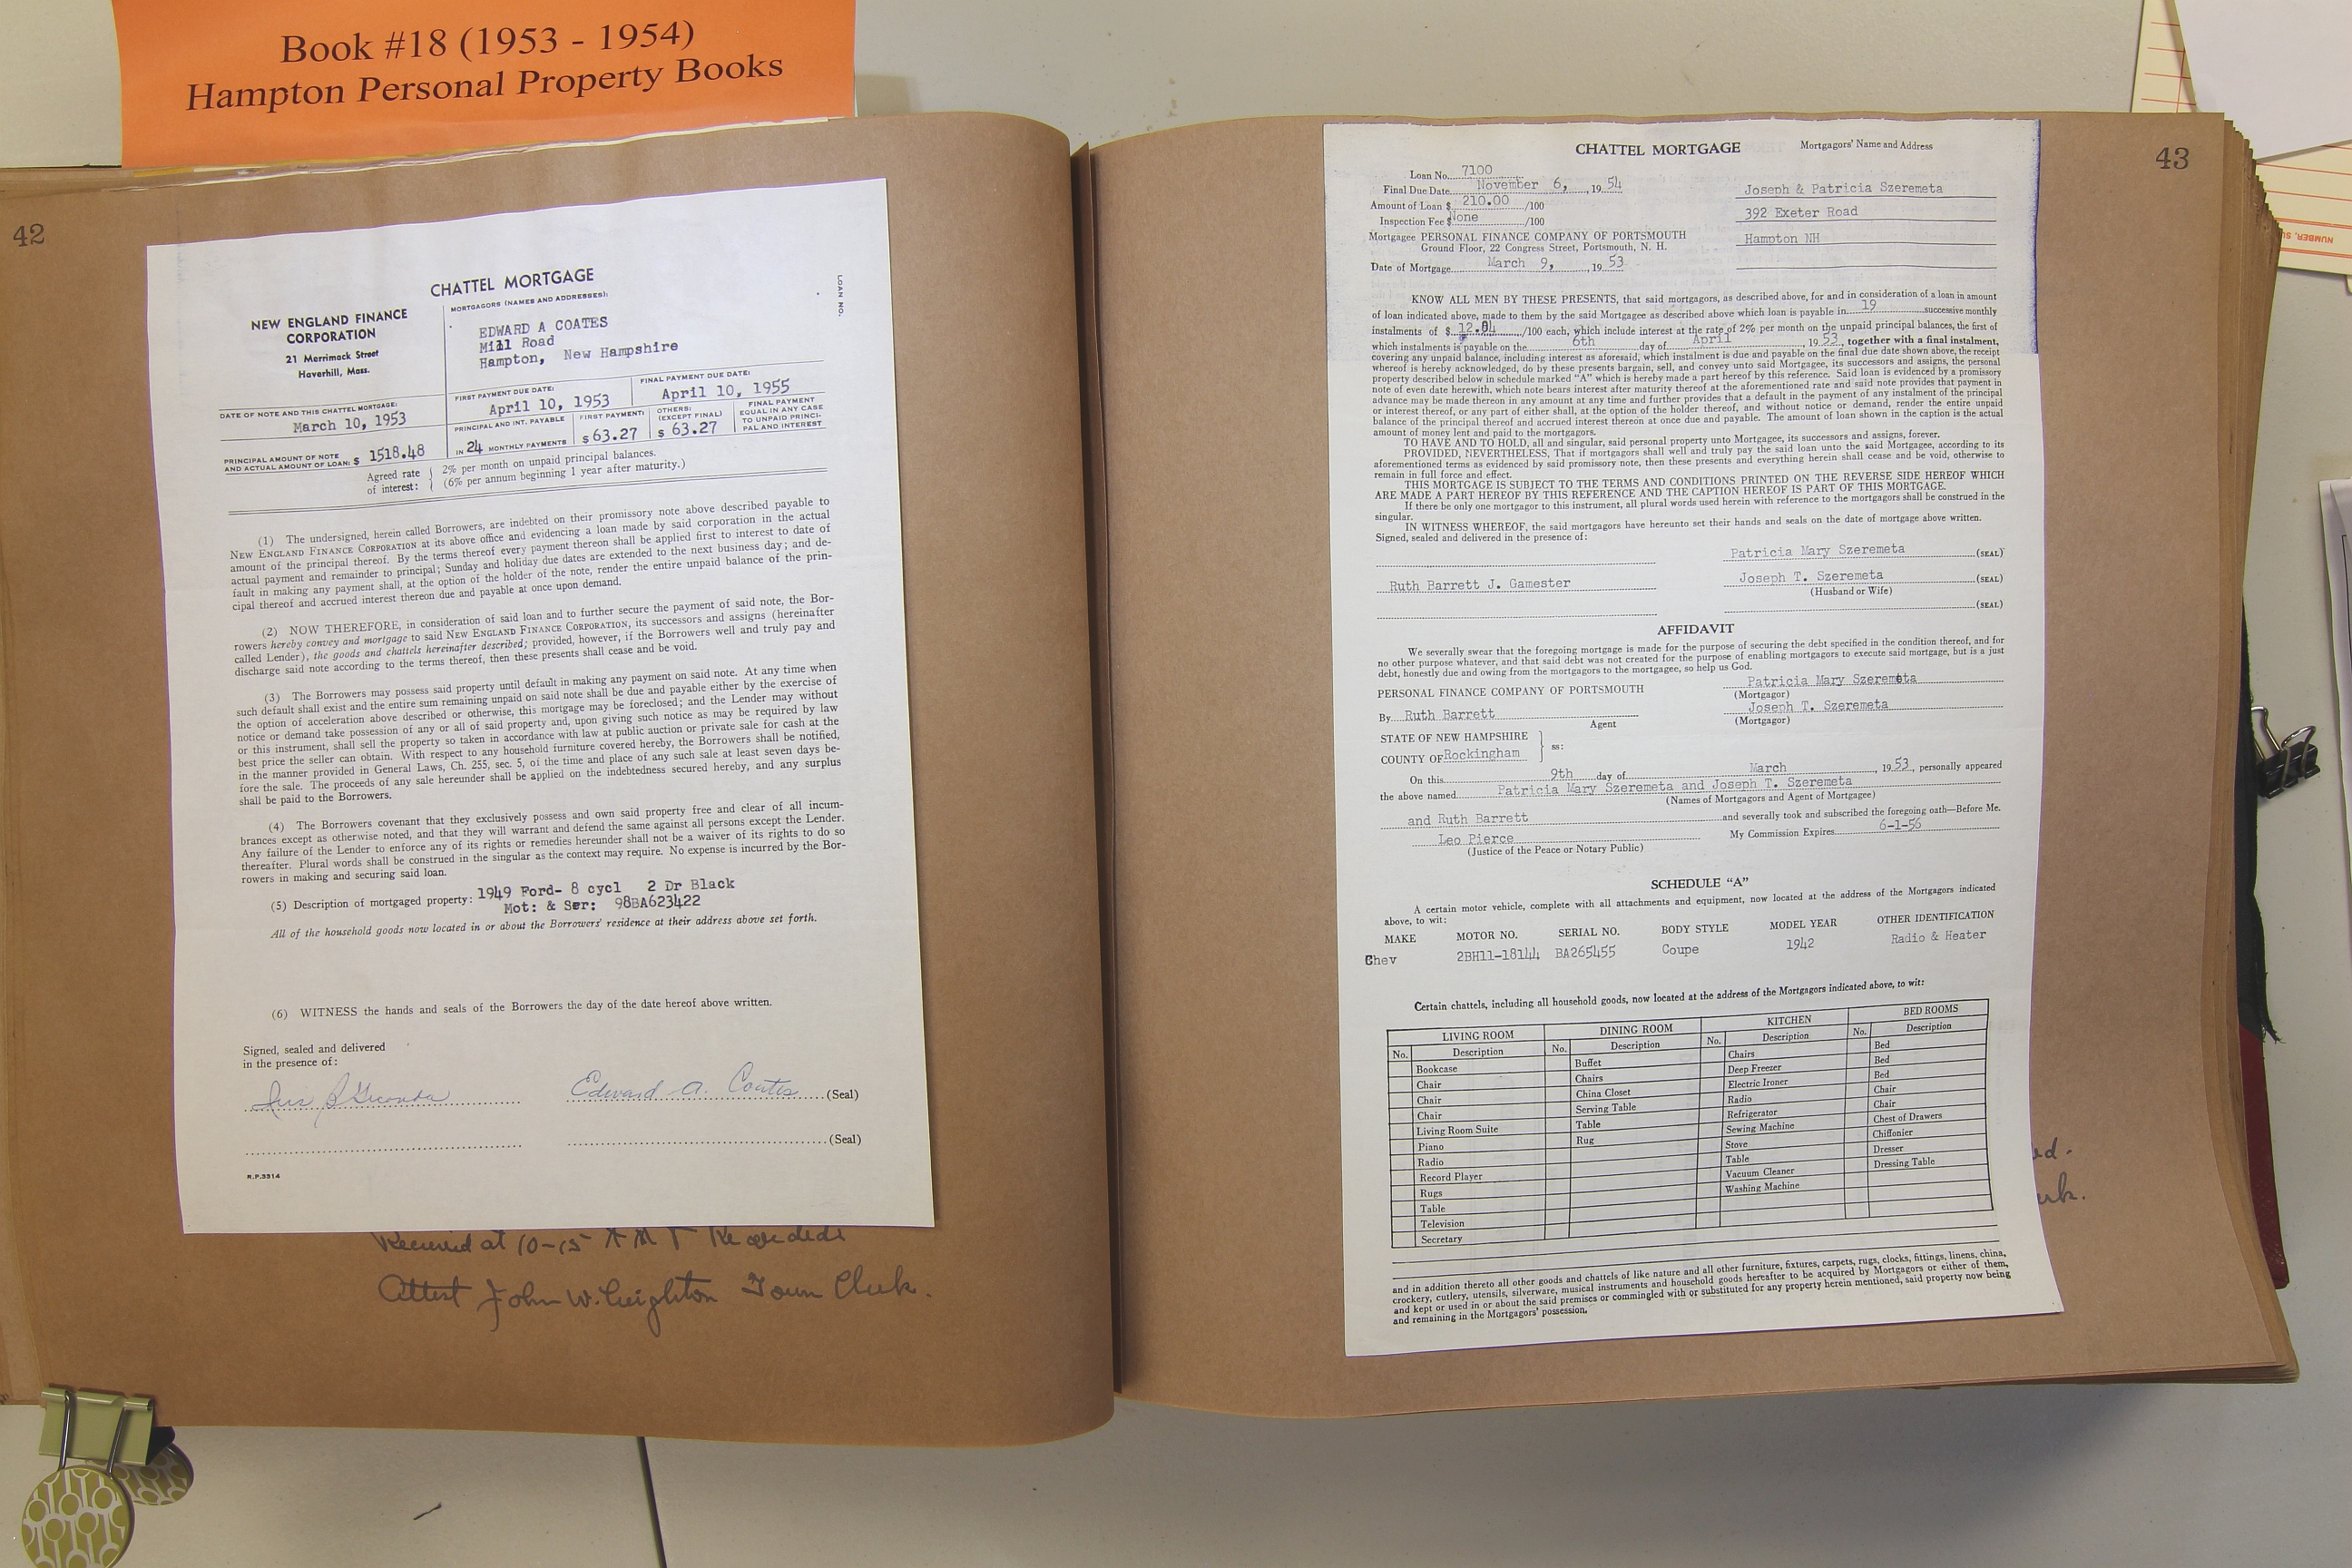 Book #18 (1953 - 1954)
Hampton Personal Property Books
42
CHATTEL MORTGAGE
LOAN NO.
NEW ENGLAND FINANCE
CORPORATION
21 Merrimack Street
Haverhill, Mass.
MORTGAGORS (NAMES AND ADDRESSES):
EDWARD A COATES
Mill Road
Hampton, New Hampshire
DATE OF NOTE AND THIS CHATTEL MORTGAGE:
March 10, 1953
FIRST PAYMENT DUE DATE:
April 10, 1953
FINAL PAYMENT DUE DATE:
April 10, 1955
PRINCIPAL AMOUNT OF NOTE
AND ACTUAL AMOUNT OF LOAN: $ 1518.48
PRINCIPAL AND INT. PAYABLE
IN 24 MONTHLY PAYMENTS
FIRST PAYMENT:
$ 63.27
OTHERS:
(EXCEPT FINAL)
$ 63.27
FINAL PAYMENT
EQUAL IN ANY CASE
TO UNPAID PRINCI-
PAL AND INTEREST
Agreed rate
of interest:
2% per month on unpaid principal balances.
(6% per annum beginning 1 year after maturity.)
(1) The undersigned, herein called Borrowers, are indebted on their promissory note above described payable to
NEW ENGLAND FINANCE CORPORATION at its above office and evidencing a loan made by said corporation in the actual
amount of the principal thereof. By the terms thereof every payment thereon shall be applied first to interest to date of
actual payment and remainder to principal; Sunday and holiday due dates are extended to the next business day; and de-
fault in making any payment shall, at the option of the holder of the note, render the entire unpaid balance of the prin-
cipal thereof and accrued interest thereon due and payable at once upon demand.
(2) NOW THEREFORE, in consideration of said loan and to further secure the payment of said note, the Bor-
rowers hereby convey and mortgage to said NEW ENGLAND FINANCE CORPORATION, its successors and assigns (hereinafter
called Lender), the goods and chattels hereinafter described; provided, however, if the Borrowers well and truly pay and
discharge said note according to the terms thereof, then these presents shall cease and be void.
(3) The Borrowers may possess said property until default in making any payment on said note. At any time when
such default shall exist and the entire sum remaining unpaid on said note shall be due and payable either by the exercise of
the option of acceleration above described or otherwise, this mortgage may be foreclosed; and the Lender may without
notice or demand take possession of any or all of said property and, upon giving such notice as may be required by law
or this instrument, shall sell the property so taken in accordance with law at public auction or private sale for cash at the
best price the seller can obtain. With respect to any household furniture covered hereby, the Borrowers shall be notified,
in the manner provided in General Laws, Ch. 255, sec. 5, of the time and place of any such sale at least seven days be-
fore the sale. The proceeds of any sale hereunder shall be applied on the indebtedness secured hereby, and any surplus
shall be paid to the Borrowers.
(4) The Borrowers covenant that they exclusively possess and own said property free and clear of all incum-
brances except as otherwise noted, and that they will warrant and defend the same against all persons except the Lender.
Any failure of the Lender to enforce any of its rights or remedies hereunder shall not be a waiver of its rights to do so
thereafter. Plural words shall be construed in the singular as the context may require. No expense is incurred by the Bor-
rowers in making and securing said loan.
(5) Description of mortgaged property: 1949 Ford- 8 cycl 2 Dr Black
Mot: & Ser: 98BA623422
All of the household goods now located in or about the Borrowers' residence at their address above set forth.
(6) WITNESS the hands and seals of the Borrowers the day of the date hereof above written.
Signed, sealed and delivered
in the presence of:
Edward A. Coates (Seal)
(Seal)
R.P.3314
Received at 10-15 A M & Recorded
Attest John W. Leighton Town Clerk.
43
CHATTEL MORTGAGE
Mortgagors' Name and Address
Loan No. 7100
Final Due Date November 6, , 19 54
Amount of Loan $ 210.00 /100
Inspection Fee $ None /100
Mortgagee PERSONAL FINANCE COMPANY OF PORTSMOUTH
Ground Floor, 22 Congress Street, Portsmouth, N. H.
Date of Mortgage March 9, , 19 53
Joseph & Patricia Szeremeta
392 Exeter Road
Hampton NH
KNOW ALL MEN BY THESE PRESENTS, that said mortgagors, as described above, for and in consideration of a loan in amount
of loan indicated above, made to them by the said Mortgagee as described above which loan is payable in 19 successive monthly
instalments of $ /100 each, which include interest at the rate of 2% per month on the unpaid principal balances, the first of
which instalments is payable on the 6th day of April , 19 53, together with a final instalment,
covering any unpaid balance, including interest as aforesaid, which instalment is due and payable on the final due date shown above, the receipt
whereof is hereby acknowledged, do by these presents bargain, sell, and convey unto said Mortgagee, its successors and assigns, the personal
property described below in schedule marked "A" which is hereby made a part hereof by this reference. Said loan is evidenced by a promissory
note of even date herewith, which note bears interest after maturity thereof at the aforementioned rate and said note provides that payment in
advance may be made thereon in any amount at any time and further provides that a default in the payment of any instalment of the principal
or interest thereof, or any part of either shall, at the option of the holder thereof, and without notice or demand, render the entire unpaid
balance of the principal thereof and accrued interest thereon at once due and payable. The amount of loan shown in the caption is the actual
amount of money lent and paid to the mortgagors.
TO HAVE AND TO HOLD, all and singular, said personal property unto Mortgagee, its successors and assigns, forever.
PROVIDED, NEVERTHELESS, That if mortgagors shall well and truly pay the said loan unto the said Mortgagee, according to its
aforementioned terms as evidenced by said promissory note, then these presents and everything herein shall cease and be void, otherwise to
remain in full force and effect.
THIS MORTGAGE IS SUBJECT TO THE TERMS AND CONDITIONS PRINTED ON THE REVERSE SIDE HEREOF WHICH
ARE MADE A PART HEREOF BY THIS REFERENCE AND THE CAPTION HEREOF IS PART OF THIS MORTGAGE.
If there be only one mortgagor to this instrument, all plural words used herein with reference to the mortgagors shall be construed in the
singular.
IN WITNESS WHEREOF, the said mortgagors have hereunto set their hands and seals on the date of mortgage above written.
Signed, sealed and delivered in the presence of:
Patricia Mary Szeremeta (SEAL)
Ruth Barrett J. Gamester
Joseph T. Szeremeta (SEAL)
(Husband or Wife)
(SEAL)
AFFIDAVIT
We severally swear that the foregoing mortgage is made for the purpose of securing the debt specified in the condition thereof, and for
no other purpose whatever, and that said debt was not created for the purpose of enabling mortgagors to execute said mortgage, but is a just
debt, honestly due and owing from the mortgagors to the mortgagee, so help us God.
PERSONAL FINANCE COMPANY OF PORTSMOUTH
Patricia Mary Szeremeta
(Mortgagor)
By Ruth Barrett
Agent
Joseph T. Szeremeta
(Mortgagor)
STATE OF NEW HAMPSHIRE
COUNTY OF Rockingham
ss:
On this 9th day of March , 19 53, personally appeared
the above named Patricia Mary Szeremeta and Joseph T. Szeremeta
(Names of Mortgagors and Agent of Mortgagee)
and Ruth Barrett and severally took and subscribed the foregoing oath—Before Me.
Leo Pierce My Commission Expires 6-1-56
(Justice of the Peace or Notary Public)
SCHEDULE "A"
A certain motor vehicle, complete with all attachments and equipment, now located at the address of the Mortgagors indicated
above, to wit:
MAKE MOTOR NO. SERIAL NO. BODY STYLE MODEL YEAR OTHER IDENTIFICATION
Chev 2BH11-18144 BA265455 Coupe 1942 Radio & Heater
Certain chattels, including all household goods, now located at the address of the Mortgagors indicated above, to wit:
LIVING ROOM DINING ROOM KITCHEN BED ROOMS
No. Description No. Description No. Description No. Description
Bookcase Buffet Chairs Bed
Chair Chairs Deep Freezer Bed
Chair China Closet Electric Ironer Bed
Chair Serving Table Radio Chair
Living Room Suite Table Refrigerator Chair
Piano Rug Sewing Machine Chest of Drawers
Radio Stove Chiffonier
Record Player Table Dresser
Rugs Vacuum Cleaner Dressing Table
Table Washing Machine
Television
Secretary
and in addition thereto all other goods and chattels of like nature and all other furniture, fixtures, carpets, rugs, clocks, fittings, linens, china,
crockery, cutlery, utensils, silverware, musical instruments and household goods hereafter to be acquired by Mortgagors or either of them,
and kept or used in or about the said premises or commingled with or substituted for any property herein mentioned, said property now being
and remaining in the Mortgagors' possession.